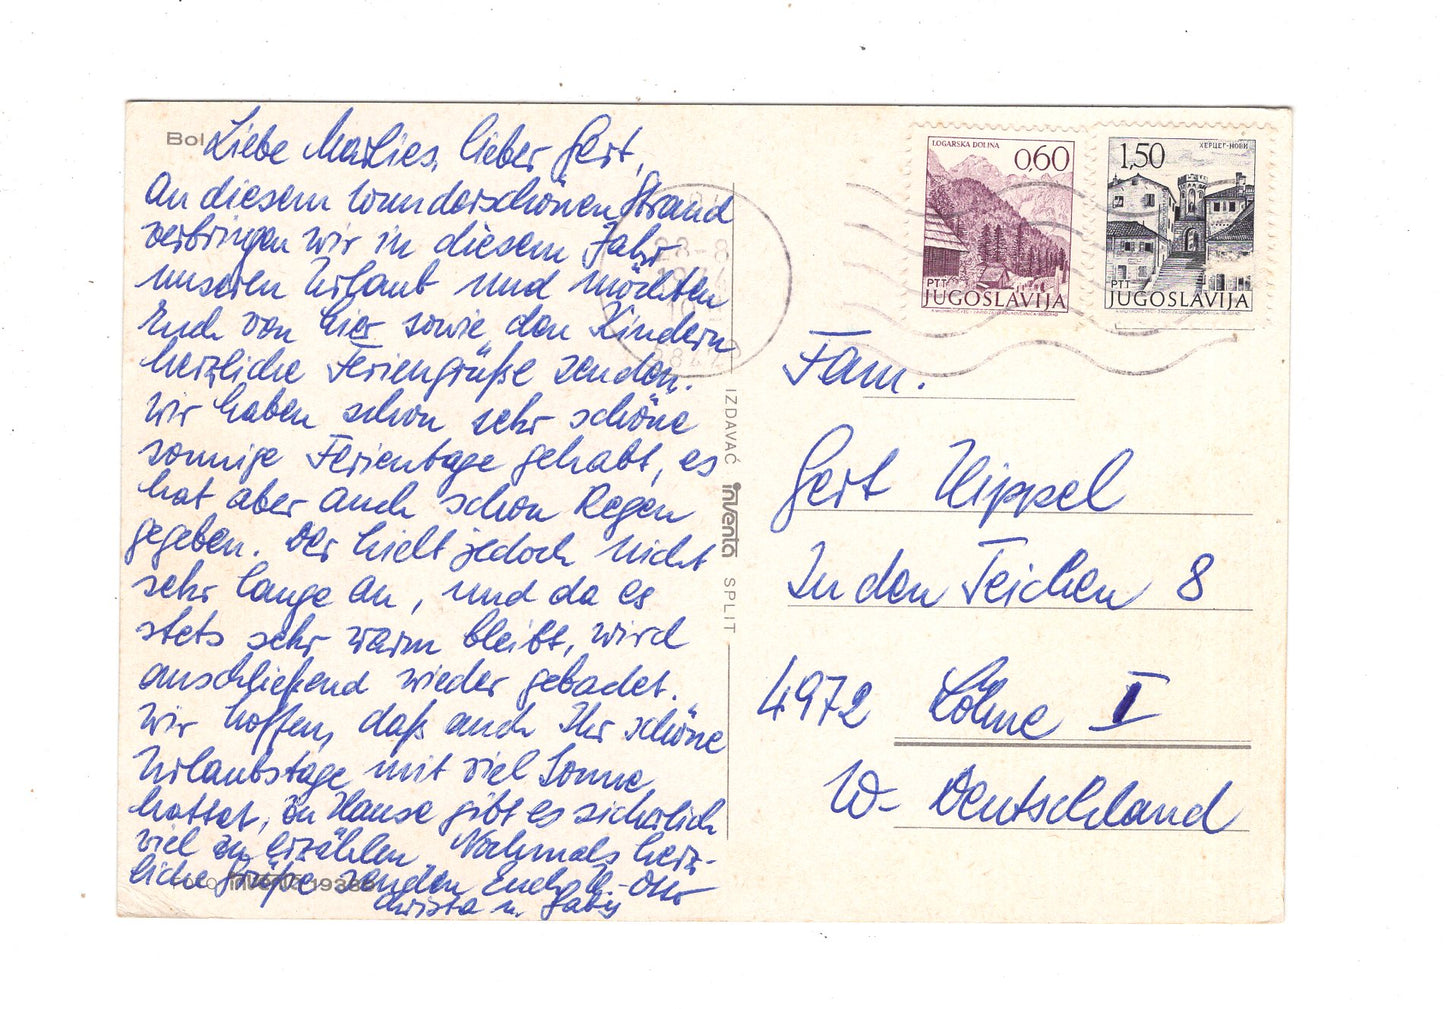 Bol
Liebe Marlies, lieber Gert,
An diesem wunderschönen Strand
verbringen wir in diesem Jahr
unseren Urlaub und möchten
Euch von hier sowie den Kindern
herzliche Feriengrüße senden.
Wir haben schon sehr schöne
sonnige Ferientage gehabt, es
hat aber auch schon Regen
gegeben. Der hielt jedoch nicht
sehr lange an, und da es
stets sehr warm bleibt, wird
anschließend wieder gebadet.
Wir hoffen, daß auch Ihr schöne
Urlaubstage mit viel Sonne
hattet, zu Hause gibt es sicherlich
viel zu erzählen. Nochmals herz-
liche Grüße senden Euch Otto
Christa u. Gaby
inventa
28-8
IZDAVAČ inventa SPLIT
LOGARSKA DOLINA
0,60
PTT
JUGOSLAVIJA
1,50
ХЕРЦЕГ-НОВИ
PTT
JUGOSLAVIJA
Fam.
Gert Hippel
In den Teichen 8
4972 Löhne I
W-Deutschland